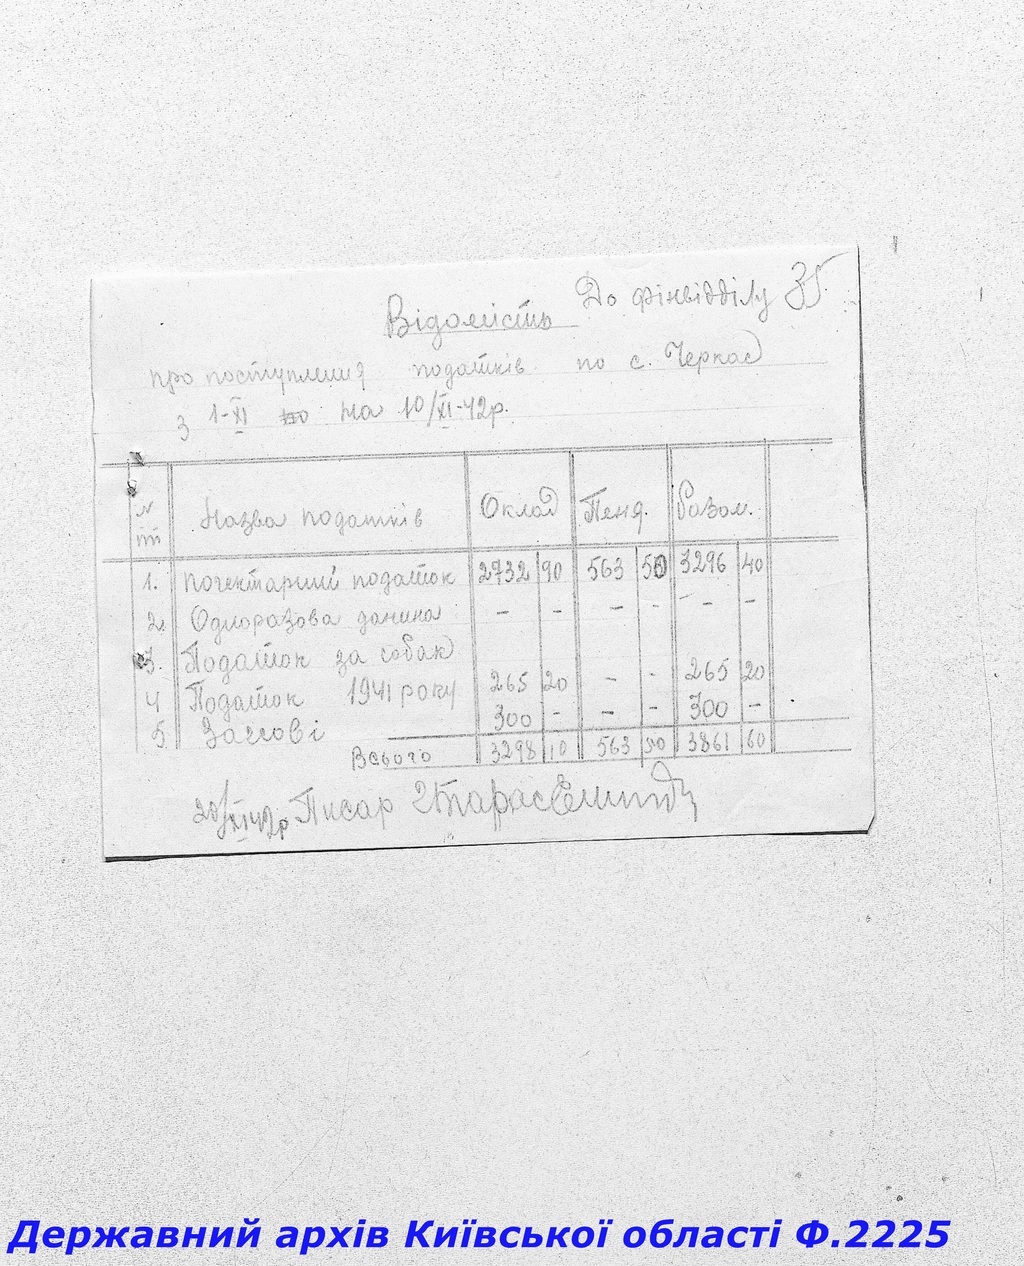 До фінвідділу 35.
Відомість
про поступления податків по с. Черкас
з 1-XI по на 10/XI-42р.
№ пп Назва податків Оклад Пеня. Разом.
1. Погектарний податок 2732 90 563 50 3296 40
2. Одноразова данина - - - - - -
3. Податок за собак
4 Податок 1941 року 265 20 - - 265 20
5 300 - - - 300 -
Всього 3298 10 563 50 3861 60
XI 42р Писар
Державний архів Київської області Ф.2225